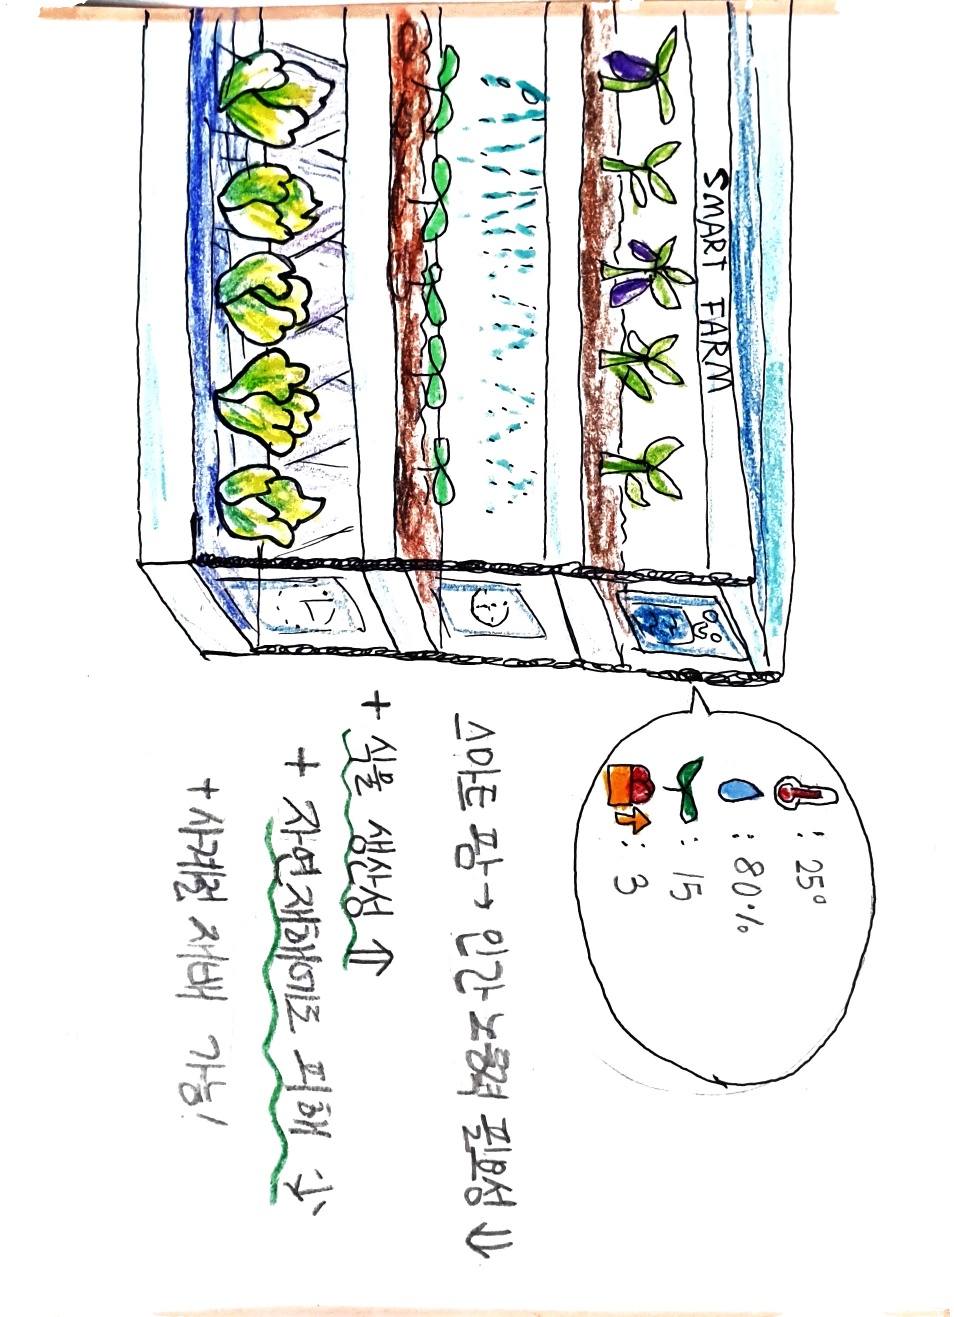 SMART FARM
: 25°
: 80%
: 15
: 3
스마트 팜 → 인간 노동력 필요성 ⇓
+ 식물 생산성 ⇑
+ 자연재해에도 피해 小
+ 사계절 재배 가능!